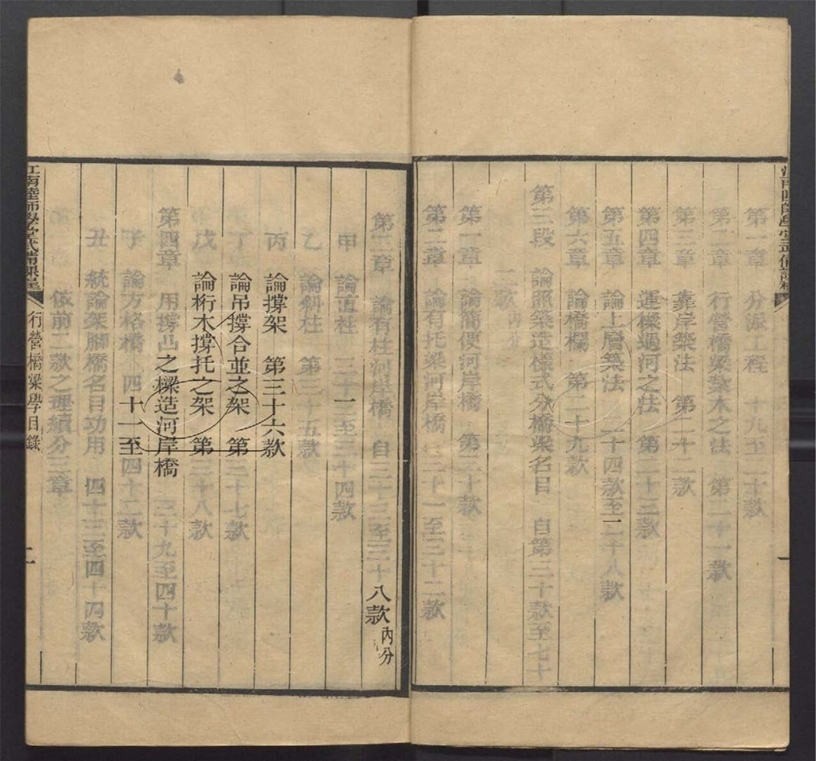 第一章　分派工程　十九至二十款
第二章　行營橋梁築木之法　第二十一款
第三章　靠岸築法　第二十二款
第四章　運樑過河之法　第二十三款
第五章　論上層築法　二十四款至二十八款
第六章　論橋欄　第二十九款
第三段　論照築造樣式分橋梁名目　自第三十款至七十
三款　內分
第一章　論簡便河岸橋　第三十款
第二章　論有托梁河岸橋　三十一至三十二款
第三章　論有柱河岸橋　自三十三至三十八款內分
甲　論直柱　三十三至三十四款
乙　論斜柱　第三十五款
丙　論撐架　第三十六款
丁　論吊撐合並之架　第三十七款
戊　論桁木撐托之架　第三十八款
第四章　用撐凸之樑造河岸橋　三十九至四十款
子　論方格橋　四十一至四十二款
丑　統論架腳橋名目功用　四十三至四十四款
依前二款之理續分三章
江南陸師學堂武備課程　行營橋梁學目錄　二